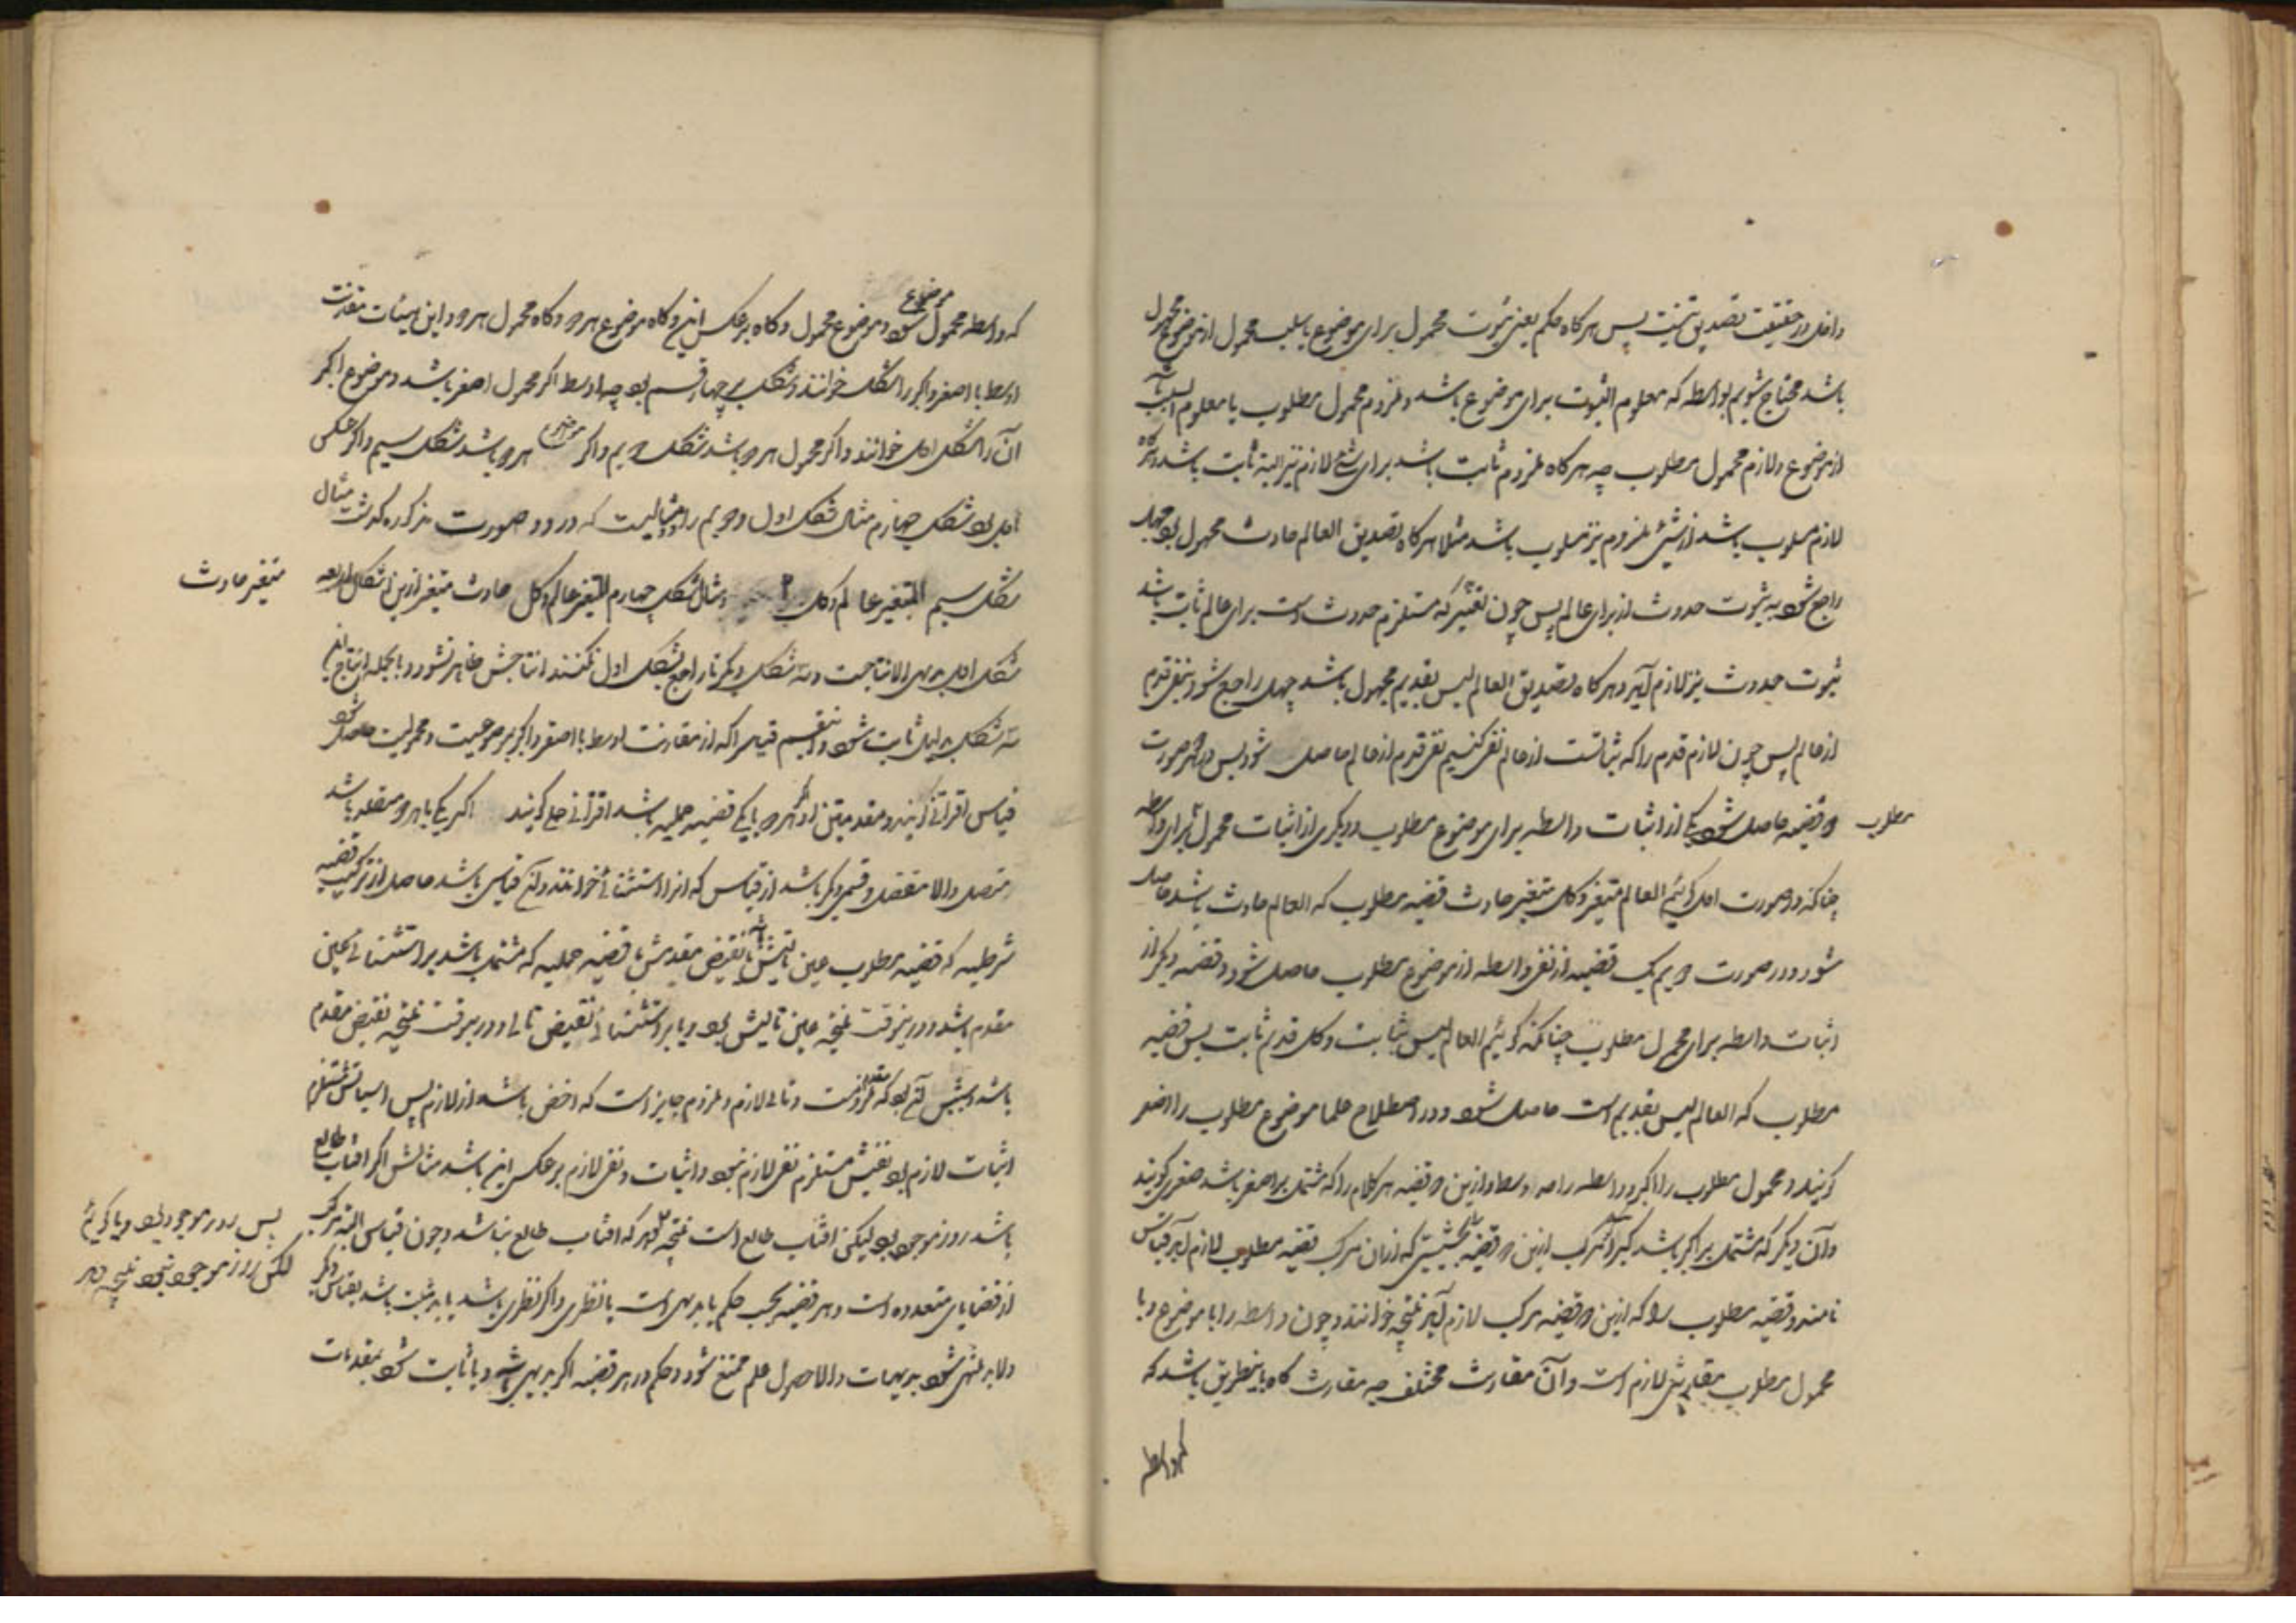 داخل در حقیقت تصدیق نیست پس هرگاه حکم یعنی ثبوت محمول برای موضوع یا سلب محمول از موضوع مجهول
باشد محتاج شویم بواسطه که معلوم الثبوت برای موضوع باشد و ملزوم محمول مطلوب یا معلوم السلب باشد
از موضوع و لازم محمول مطلوب چه هرگاه ملزوم ثابت باشد برای شئ لازم نیز البته ثابت باشد و هرگاه
لازم مسلوب باشد از شئ ملزوم نیز مسلوب باشد مثلا هرگاه تصدیق العالم حادث مجهول بود جهل
راجع شود به ثبوت حدوث از برای عالم پس چون تغیر که مستلزم حدوث است برای عالم ثابت باشد
ثبوت حدوث نیز لازم آید و هرگاه تصدیق العالم لیس بقدیم مجهول باشد جهل راجع شود بنفی قدم
از عالم پس چون لازم قدم را که ثباتست از عالم نفی کنیم نفی قدم از عالم حاصل شود پس در هر صورت
دو قضیه حاصل شود یکی از اثبات واسطه برای موضوع مطلوب و دیگری از اثبات محمول برای واسطه
مطلوب
چنانکه در صورت اول گوئیم العالم متغیر و کل متغیر حادث قضیه مطلوب که العالم حادث باشد حاصل
شود و در صورت دویم یک قضیه از نفی واسطه از موضوع مطلوب حاصل شود و قضیه دیگر از
اثبات واسطه برای محمول مطلوب چنانکه گوئیم العالم لیس بثابت و کل قدیم ثابت پس قضیه
مطلوب که العالم لیس بقدیم است حاصل شود و در اصطلاح علما موضوع مطلوب را اصغر
گویند و محمول مطلوب را اکبر و واسطه را حد اوسط و ازین دو قضیه هر کدام را که مشتمل بر اصغر باشد صغری گویند
و آن دیگر که مشتمل بر اکبر باشد کبری و مرکب ازین دو قضیه بحیثیتی که از آن مرکب قضیه مطلوب لازم آید قیاس
نامند و قضیه مطلوب را که ازین دو قضیه مرکب لازم آید نتیجه خوانند و چون واسطه را با موضوع و با
محمول مطلوب مقارنتی لازم است و آن مقارنت مختلف چه مقارنت گاه باینطریق باشد که
که واسطه
که واسطه محمول موضوع شود و موضوع محمول و گاه برعکس این و گاه موضوع هر دو و گاه محمول هر دو و این هیئات مقارنت
اوسط با اصغر و اکبر را شکل خوانند و شکل بر چهار قسم بود چه اوسط اگر محمول اصغر باشد و موضوع اکبر
آن را شکل اول خوانند و اگر محمول هر دو باشد شکل دویم و اگر موضوع هر دو باشد شکل سیم و اگر عکس
اول بود شکل چهارم مثال شکل اول و دویم را دو مثالیست که در دو صورت مذکوره گذشت مثال
شکل سیم المتغیر عالم و کل و مثال شکل چهارم المتغیر عالم و کل حادث متغیر ازین اشکال اربعه
متغیر حادث
شکل اول بدیهی الانتاجست و سه شکل دیگر تا راجع بشکل اول نکنند انتاجش ظاهر نشود و بالجمله انتاج این
سه شکل بدلیل ثابت شود و این قسم قیاس را که از مقارنت اوسط با اصغر و اکبر بموضوعیت و محمولیت حاصل شود
قیاس اقترانی گویند و مقدمتین او اگر هر دو یا یکی قضیه حملیه باشد اقترانی حملی گویند اگر یکی یا هر دو متصله باشد
متصل والا منفصل و قسمی دیگر باشد از قیاس که آنرا استثنائی خوانند و آن قیاسی باشد حاصل از ترکیب قضیه
شرطیه که قضیه مطلوب عین تالیش یا نقیض مقدمش با قضیه حملیه که مشتمل باشد بر استثنائی عین
مقدم باشد و درینوقت نتیجه عین تالیش بود و یا بر استثنائی نقیض تالی و درینوقت نتیجه نقیض مقدم
باشد و بیش آن بود که مقدم ملزومست و تالی لازم و ملزوم جایز است که اخص باشد از لازم پس اثباتش مستلزم
اثبات لازم بود نفیش مستلزم نفی لازم نبود و اثبات و نفی لازم برعکس این باشد مثالش اگر آفتاب طالع
باشد روز موجود بود لیکن آفتاب طالع است نتیجه دهد که آفتاب طالع نباشد و چون قیاس البته مرکب
پس روز موجود بود و یا گوئیم
لکن روز موجود نبود نتیجه دهد
از قضایای متعدده است و هر قضیه بحسب حکم یا بدیهی است یا نظری و اگر نظری باشد باید مثبت باشد بقیاس دیگر
ولابد منتهی شود ببدیهیات والا حصول علم ممتنع شود و حکم در هر قضیه اگر بدیهی باشد و یا ثابت شود بمقدمات